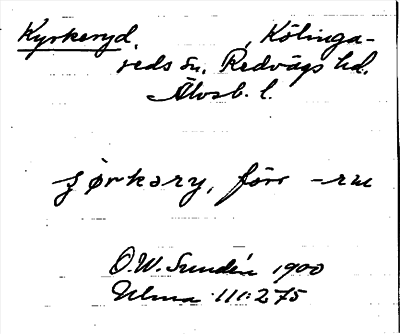 Kyrkeryd, Kölinga-
reds sn, Redvägs hd.
Älvsb. l.
förr -ru
O.W. Sundén 1900
Ulma 111:275